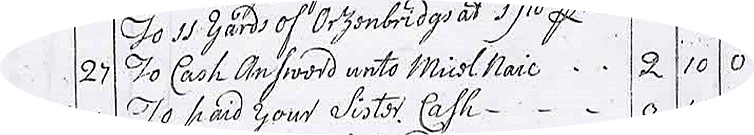 To 11 Yards of Orzenbridgs at 1/10 pr
27 To Cash Answerd unto Micel Naic - - 2 10 0
To paid Your Sister Cash - - - -